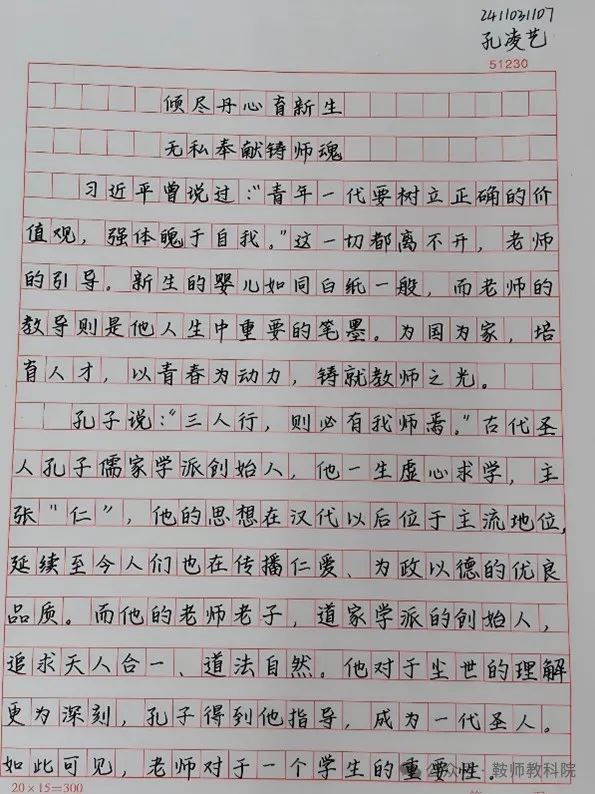 2411031107
孔凌艺
51230
倾尽丹心育新生
无私奉献铸师魂
习近平曾说过:“青年一代要树立正确的价
值观，强体魄于自我。”这一切都离不开，老师
的引导。新生的婴儿如同白纸一般，而老师的
教导则是他人生中重要的笔墨。为国为家，培
育人才，以青春为动力，铸就教师之光。
孔子说:“三人行，则必有我师焉。”古代圣
人孔子儒家学派创始人，他一生虚心求学，主
张“仁”，他的思想在汉代以后位于主流地位，
延续至今人们也在传播仁爱、为政以德的优良
品质。而他的老师老子，道家学派的创始人，
追求天人合一、道法自然。他对于尘世的理解
更为深刻，孔子得到他指导，成为一代圣人。
如此可见，老师对于一个学生的重要性。
公众号·鞍师教科院
20×15=300